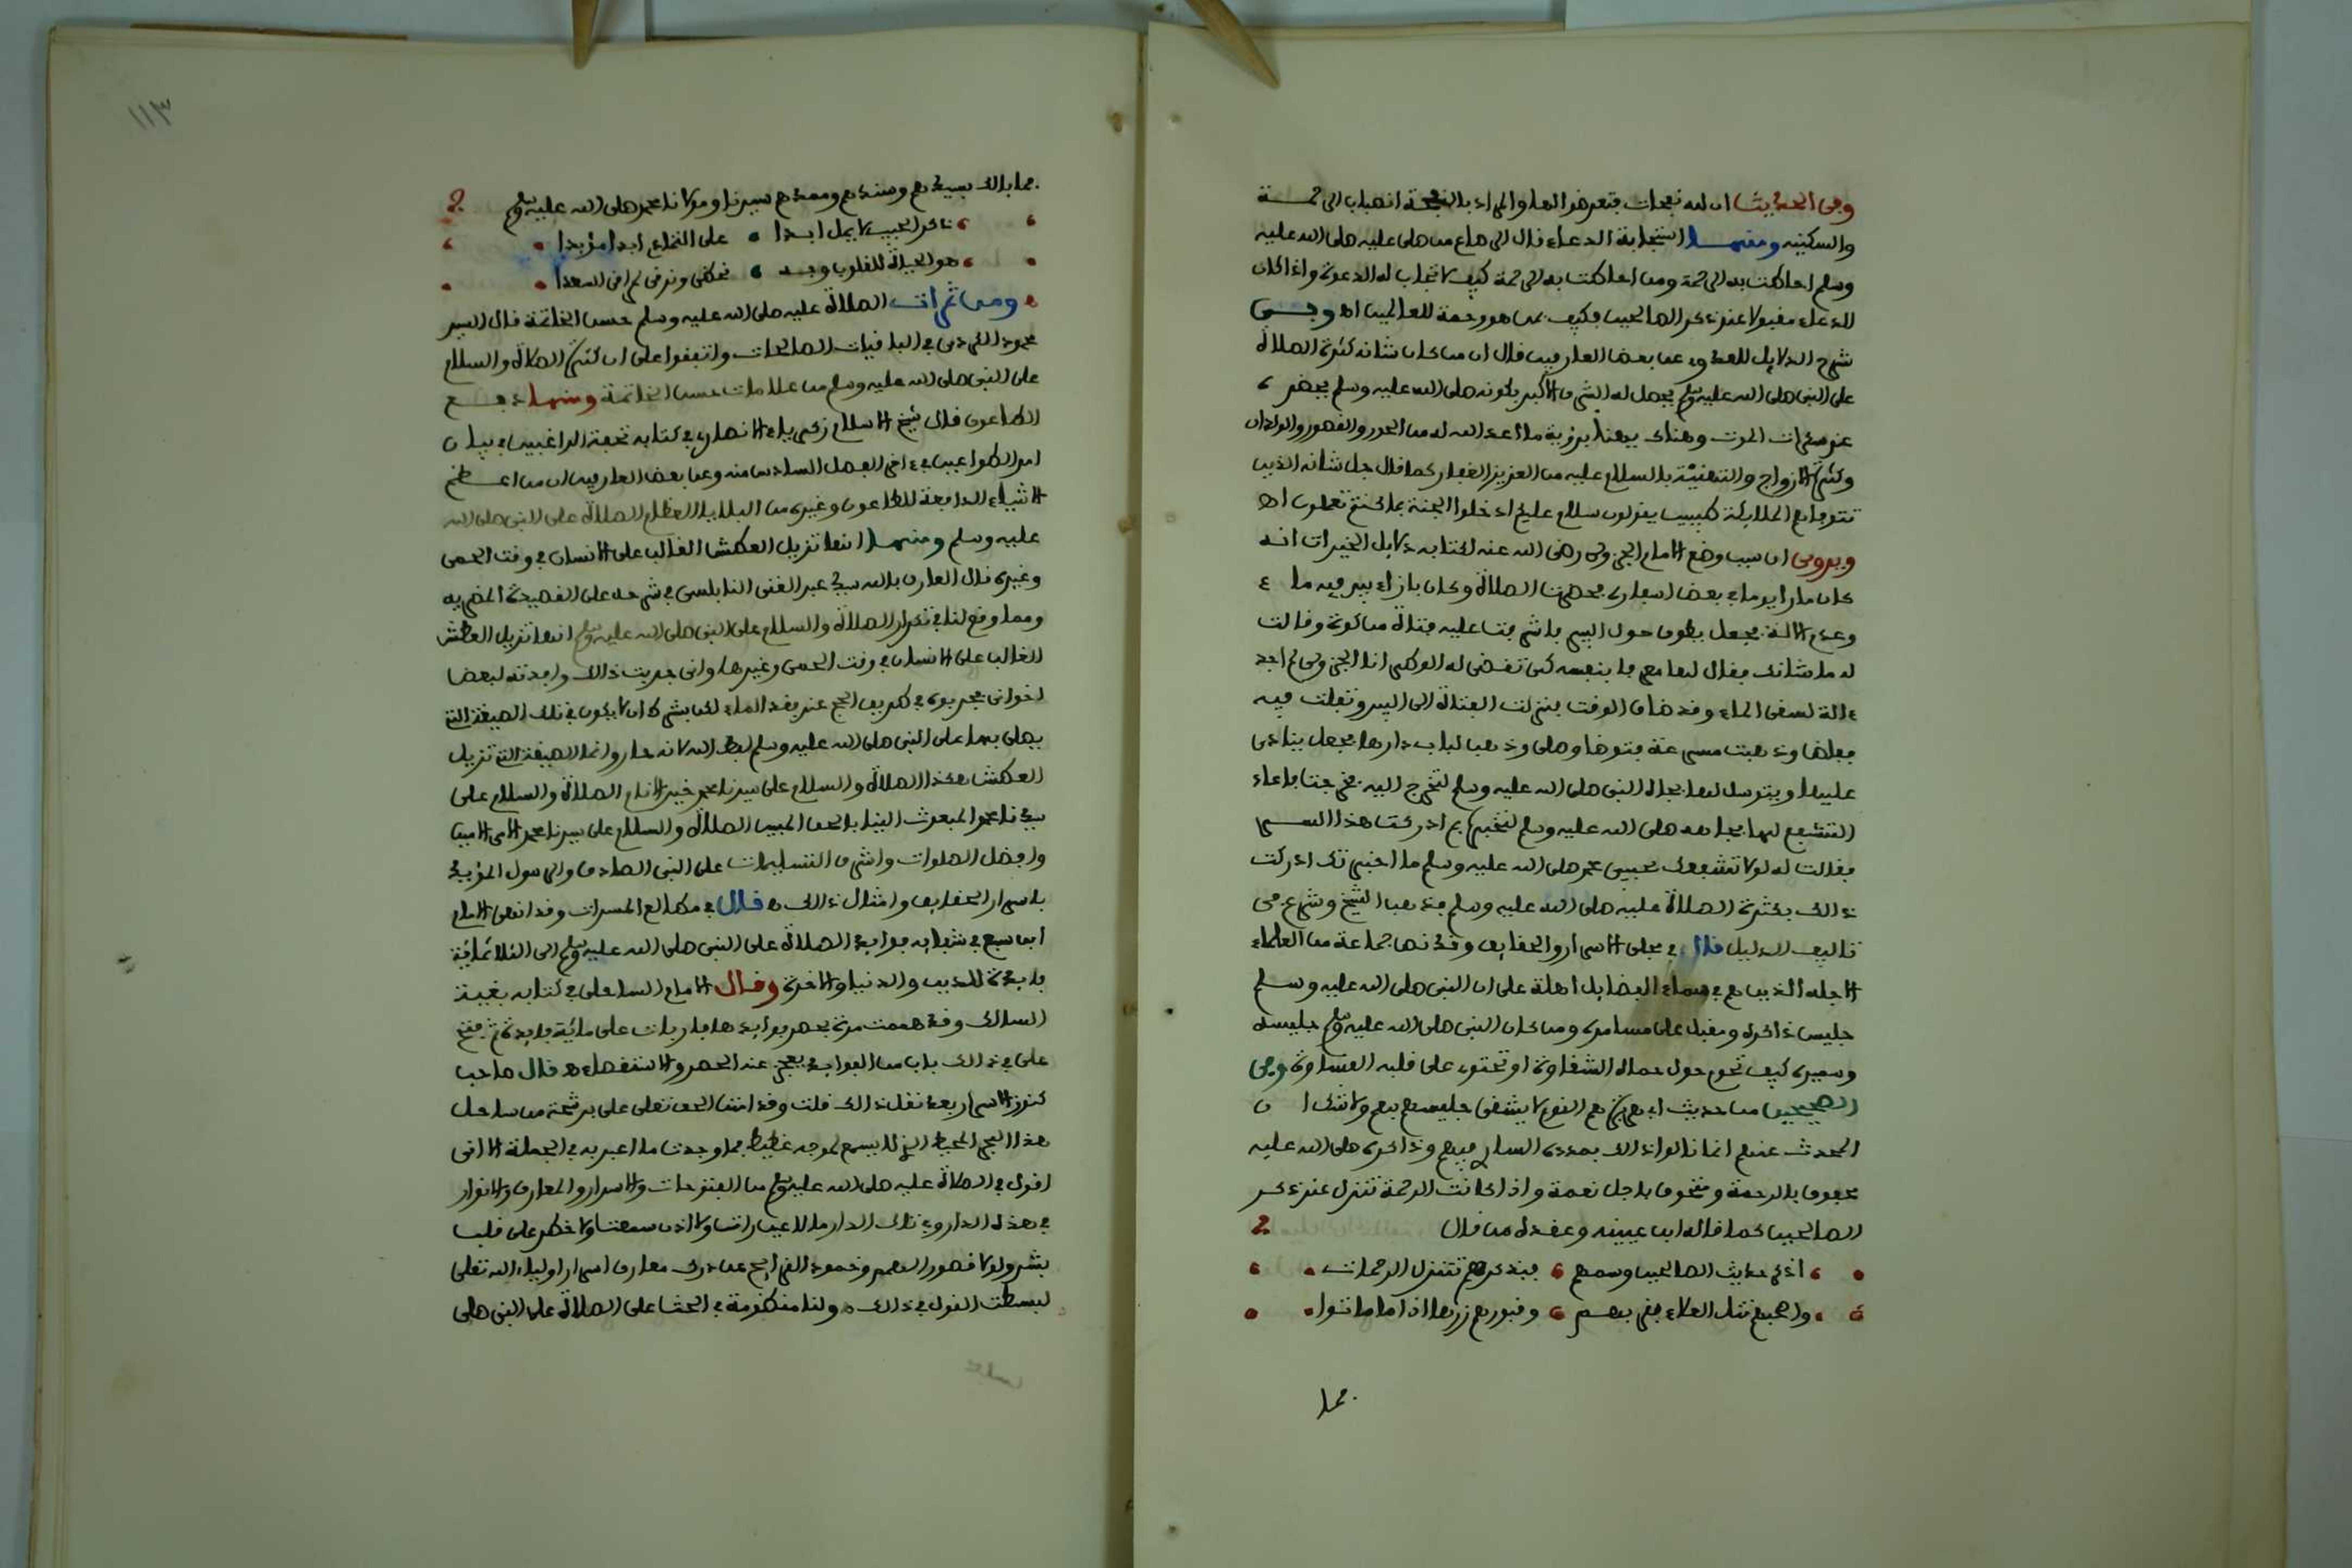 وفى الحديث ان لله نفحات فتعرضوا لها والمراد بالنفحة انصباب الرحمة
والسكينه ومنها استجابة الدعاء قال الرصاع من صلى عليه صلى الله عليه
وسلم احاطت به الرحمة ومن احاطت به الرحمة كيف لا تجاب له الدعوة واذا كان
الدعاء مقبولا عند ذكر الصالحين فكيف بمن هو رحمة للعالمين اه وفى
شرح الدلايل للعدوى عن بعض العارفين قال ان من كان شانه كثرة الصلاة
على النبى صلى الله عليه وسلم يحصل له الشرف الاكبر بكونه صلى الله عليه وسلم يحضره
عند سكرات الموت وهناك يهنأ برؤية ما اعد الله له من الحور والقصور والولدان
وكثرة الازواج والتهنئة بالسلام عليه من العزيز الغفار كما قال جل شانه الذين
تتوفاهم الملايكة طيبين يقولون سلام عليكم ادخلوا الجنة بما كنتم تعملون اه
ويروى ان سبب وضع الامام الجزولى رضى الله عنه لكتابه دلايل الخيرات انه
كان مارا يوما فى بعض اسفاره فحضرت الصلاة وكان بازاء بير فيه ماء
وعدم الالة فجعل يطوف حول البير فاشرفت عليه فتاة من كوة وقالت
له ما شانك فقال لها معرفا بنفسه كى تقضى له الوطر انا الجزولى لم اجد
ءالة لسقى الماء وقد ضاق الوقت فنزلت الفتاة الى البير وتفلت فيه
ففاض وذهبت مسرعة فتوضا وصلى وذهب لباب دارها فجعل ينادى
عليها ويتوسل لها بجاه النبى صلى الله عليه وسلم لتخرج اليه فخرجت فاعاد
التشفع لها بجاهه صلى الله عليه وسلم لتخبره بم ادركت هذا السر
فقالت له لولا تشفعك بحبيبى محمد صلى الله عليه وسلم ما اخبرتك ادركت
ذالك بكثرة الصلاة عليه صلى الله عليه وسلم فذهب الشيخ وشرع فى
تاليف الدليل قال فى مجلى الاسرار والحقايق وقد نص جماعة من العلماء
الاجله الذين هم فى سماء الفضايل اهلة على ان النبى صلى الله عليه وسلم
جليس ذاكره ومقبل على مسامره ومن كان النبى صلى الله عليه وسلم جليسه
وسميره كيف تحوم حول حماه الشقاوة او تحتوى على قلبه القساوة وفى
الصحيحين من حديث ابى هريرة هم القوم لا يشقى جليسهم بهم ولا شك ان
المحدث عنهم انما نالوا ذالك بمدده السارى فيهم وذاكره صلى الله عليه
محفوف بالرحمة ومتحوف باجل نعمة واذا كانت الرحمة تتنزل عند ذكر
الصالحين كما قاله ابن عيينه وعقده من قال
اذكر حديث الصالحين وسمهم فبذكرهم تتنزل الرحمات
واصحبهم تنل العلاء بقربهم وقبورهم زرها اذا ما ماتوا
فما
١١٣
فما بالك بسيدهم وسندهم وممدهم سيدنا ومولانا محمد صلى الله عليه وسلم
ذاكر الحبيب لا يمل ابدا على الدوام ابدا مؤبدا
هو الحياة للقلوب وبه تحظى وترقى لمراقى السعدا
ومن ثمرات الصلاة عليه صلى الله عليه وسلم حسن الخاتمة قال السيد
محمود الكردى فى الباقيات الصالحات واتفقوا على ان كثرة الصلاة والسلام
على النبى صلى الله عليه وسلم من علامات حسن الخاتمة ومنها دفع
الطاعون قال شيخ الاسلام زكرياء الانصارى فى كتابه تحفة الراغبين فى بيان
امر الطواعين فى ءاخر الفصل السادس منه وعن بعض العارفين ان من اعظم
الاشياء الدافعة للطاعون وغيره من البلايا العظام الصلاة على النبى صلى الله
عليه وسلم ومنها انها تزيل العطش الغالب على الانسان فى وقت الحمى
وغيره قال العارف بالله سيدى عبد الغنى النابلسى فى شرحه على القصيدة المضريه
ومما وقع لنا فى تكرار الصلاة والسلام على النبى صلى الله عليه وسلم انها تزيل العطش
الغالب على الانسان فى وقت الحمى وغيرها وانى جربت ذالك وافدته لبعض
اخوانى فجربوه فى طريق الحج عند فقد الماء لكن بشرط ان لا يكون فى تلك الصيغة التى
يصلى بها على النبى صلى الله عليه وسلم لفظ الله لانه حار وانما الصيغة التى تزيل
العطش هكذا الصلاة والسلام على سيدنا محمد خير الانام الصلاة والسلام على
سيدنا محمد المبعوث الينا بالحق المبين الصلاة والسلام على سيدنا محمد الامى الامين
وافضل الصلوات واشرف التسليمات على النبى الصادق والرسول المؤيد
باسرار الحقايق وامثال ذالك ه قال فى مطالع المسرات وقد انهى الامام
ابن سبع فى شفايه فوايد الصلاة على النبى صلى الله عليه وسلم الى الثلاثمائة
فايدة للدين والدنيا والاخرة وقال الامام الساحلى فى كتابه بغية
السالك وقد هممت مرة بحصر فوايدها فاربات على مائة فايدة ثم فتح
على فى ذالك باب من الفوايد يعجز عند الحصر والاستقصاء ه قال صاحب
كنوز الاسرار بعد نقل ذالك قلت وقد امتن الحق تعلى على برشحة من ساحل
هذا البحر المحيط الذى لا يسمع لموجه غطيط فما وجدت ما اعبر به فى الجملة الا انى
اقول فى الصلاة عليه صلى الله عليه وسلم من الفتوحات والاسرار والمعارف والانوار
فى هذه الدار وفى تلك الدار ما لا عين رات ولا اذن سمعت ولا خطر على قلب
بشر ولولا قصور الهمم وخمود القرايح عن درك معارف اسرار اولياء الله تعلى
لبسطت القول فى ذالك ه ولنا منظومة فى الحث على الصلاة على النبى صلى